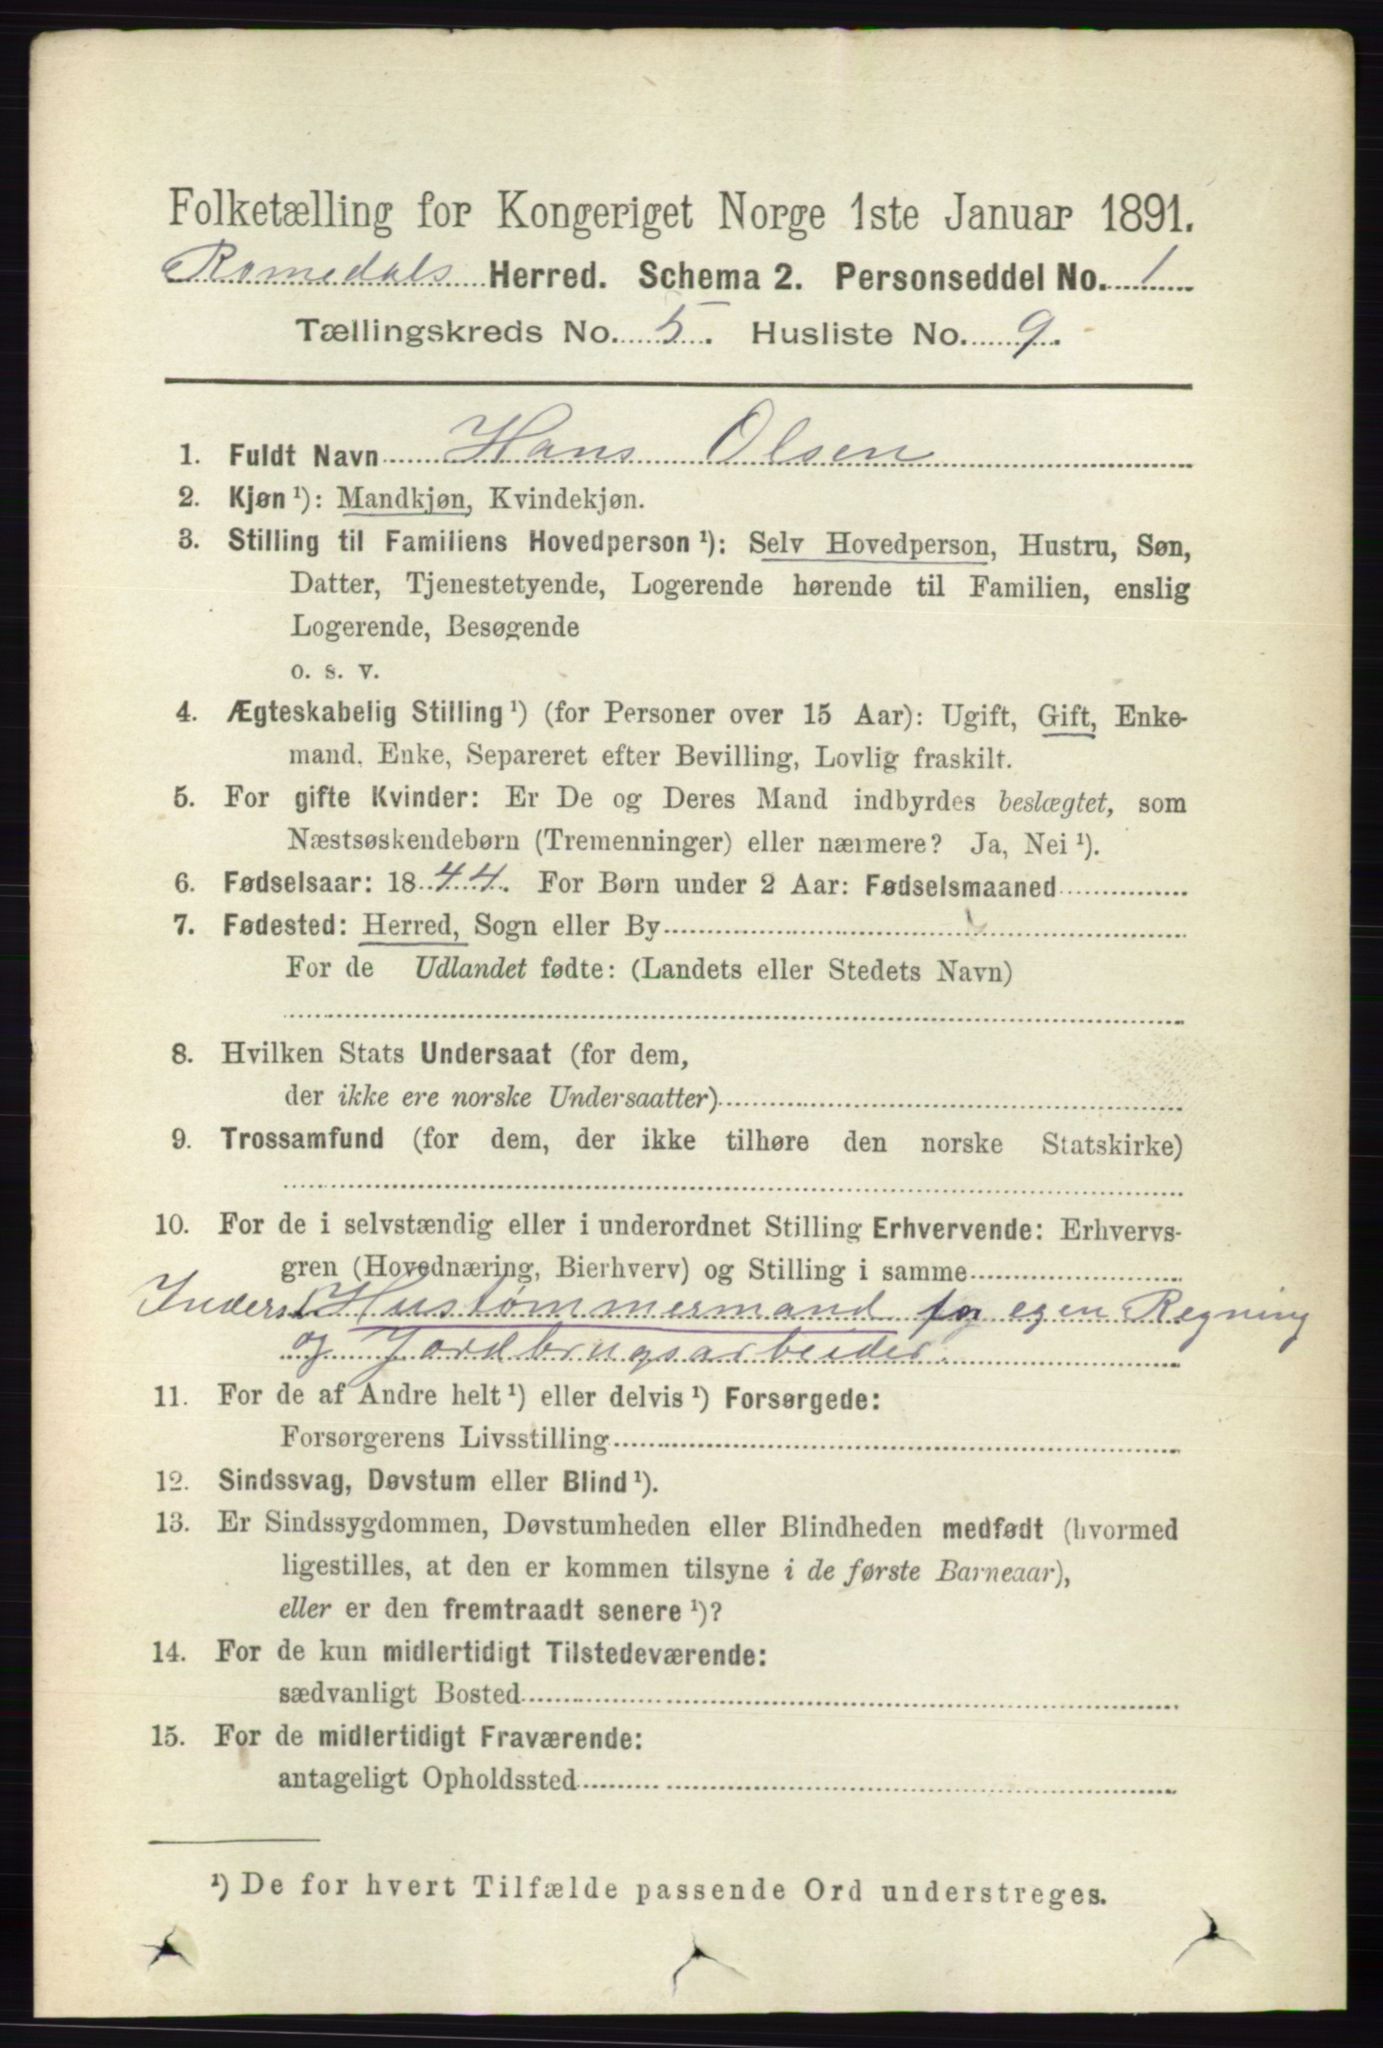 Folketælling for Kongeriget Norge 1ste Januar 1891.
Romedals Herred. Schema 2. Personseddel No. 1
Tællingskreds No. 5. Husliste No. 9.
1. Fuldt Navn Hans Olsen
2. Kjøn ¹): Mandkjøn, Kvindekjøn.
3. Stilling til Familiens Hovedperson ¹): Selv Hovedperson, Hustru, Søn,
Datter, Tjenestetyende, Logerende hørende til Familien, enslig
Logerende, Besøgende
o. s. v.
4. Ægteskabelig Stilling ¹) (for Personer over 15 Aar): Ugift, Gift, Enke-
mand, Enke, Separeret efter Bevilling, Lovlig fraskilt.
5. For gifte Kvinder: Er De og Deres Mand indbyrdes beslægtet, som
Næstsøskendebørn (Tremenninger) eller nærmere? Ja, Nei ¹).
6. Fødselsaar: 1844. For Børn under 2 Aar: Fødselsmaaned
7. Fødested: Herred, Sogn eller By
For de Udlandet fødte: (Landets eller Stedets Navn)
8. Hvilken Stats Undersaat (for dem,
der ikke ere norske Undersaatter)
9. Trossamfund (for dem, der ikke tilhøre den norske Statskirke)
10. For de i selvstændig eller i underordnet Stilling Erhvervende: Erhvervs-
gren (Hovednæring, Bierhverv) og Stilling i samme
Inderst Hustømmermand for egen Regning
og Jordbrugsarbeider.
11. For de af Andre helt ¹) eller delvis ¹) Forsørgede:
Forsørgerens Livsstilling
12. Sindssvag, Døvstum eller Blind ¹).
13. Er Sindssygdommen, Døvstumheden eller Blindheden medfødt (hvormed
ligestilles, at den er kommen tilsyne i de første Barneaar),
eller er den fremtraadt senere ¹)?
14. For de kun midlertidigt Tilstedeværende:
sædvanligt Bosted
15. For de midlertidigt Fraværende:
antageligt Opholdssted
¹) De for hvert Tilfælde passende Ord understreges.